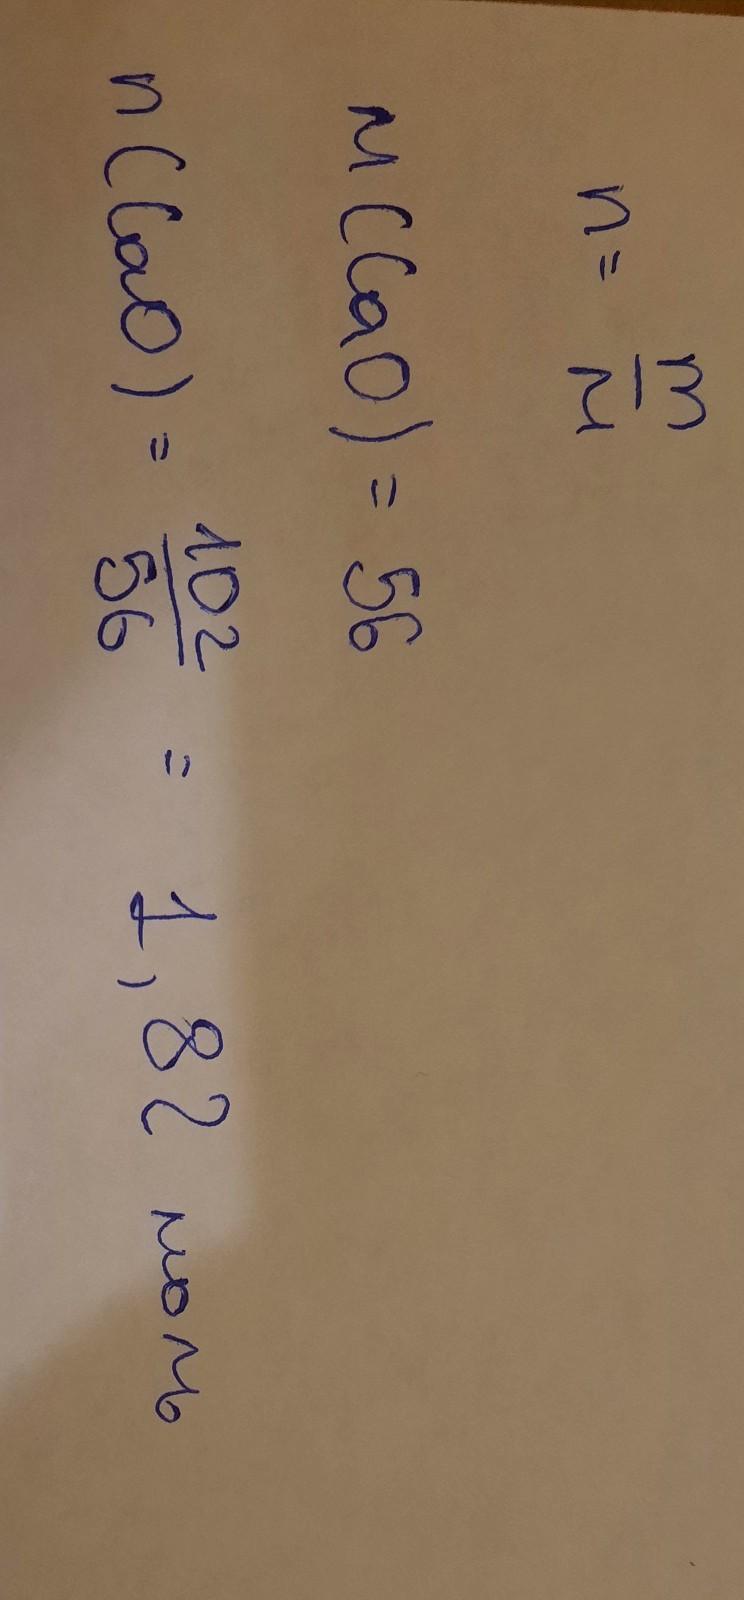 n = m/M
M(CaO) = 56
n(CaO) = 102/56 = 1,82 моль